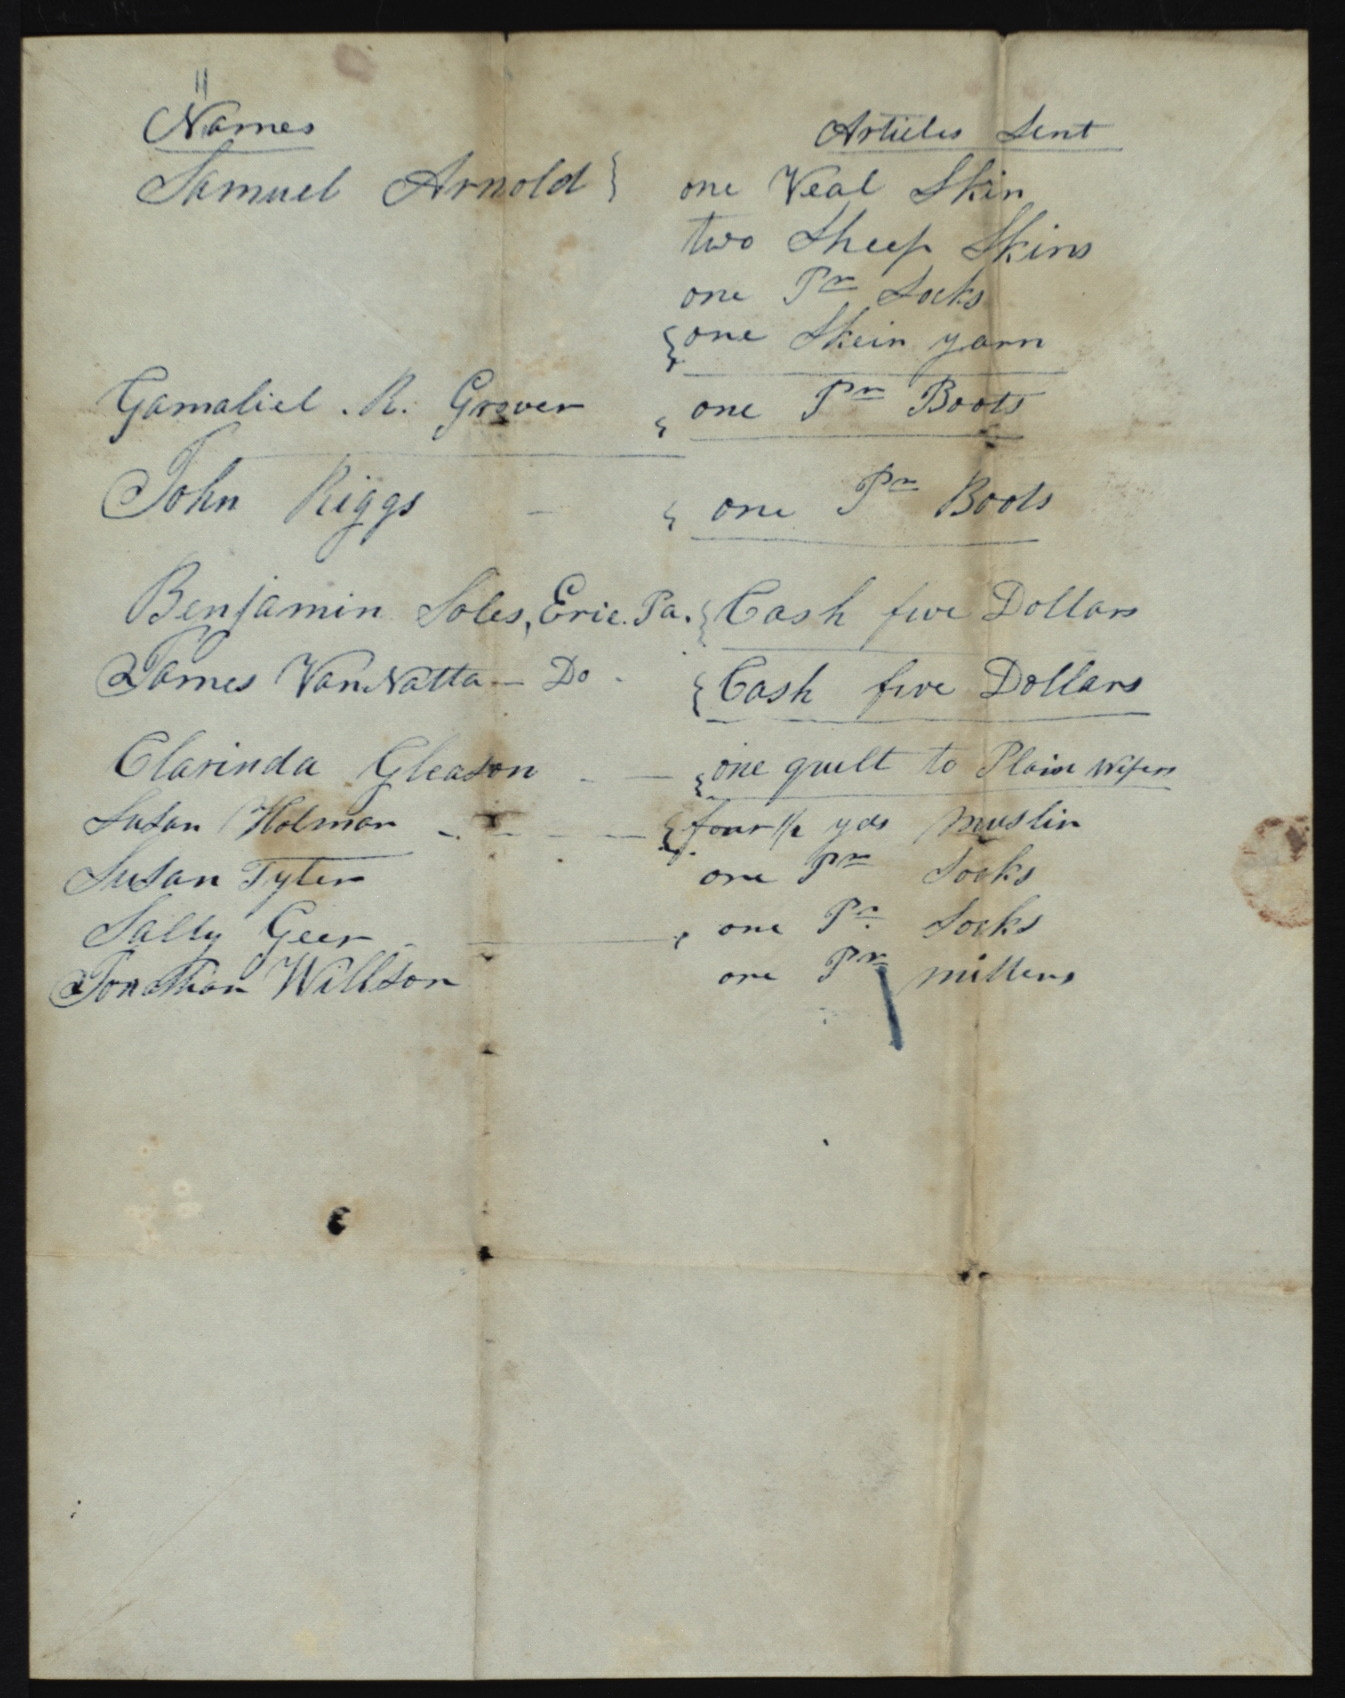 Names Articles Sent
Samuel Arnold } one Veal Skin
two Sheep Skins
one Pr Socks
{ one Skein yarn
Gamaliel . R. Grover { one Pr Boots
John Riggs - { one Pr Boots
Benjamin Soles, Erie. Pa. { Cash five Dollars
James VanNatta - Do - { Cash five Dollars
Clarinda Gleason - - { one quilt to Plain
Susan Holman - - - - { four 1/2 yds Muslin
Susan Tyler one Pr Socks
Sally Geer - - one Pr. Socks
Jonathan Willson one Pr mittens